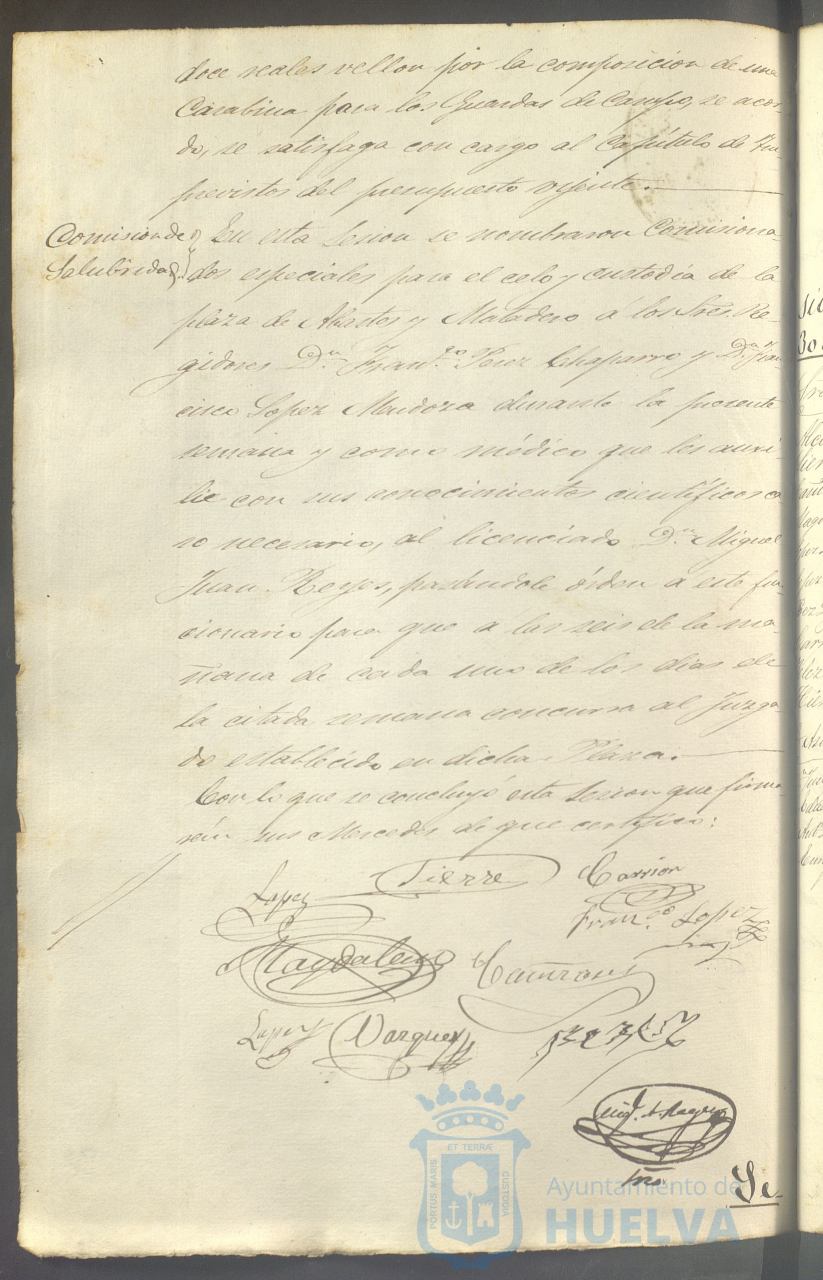 doce reales vellon por la composicion de una
Carabina para los Guardas de Campo, se acor-
dó, se satisfaga con cargo al Capítulo de Im-
previstos del presupuesto vijente.
Comision de
Salubridad.
En esta Sesion se nombraron Comisiona-
dos especiales para el celo y custodia de la
plaza de Abastos y Matadero á los Sres. Re-
gidores Dn. Franco. Perez Chaparro y Dn. Fran-
cisco Lopez Mendoza durante la presente
semana y como médico que les auxi-
lie con sus conocimientos científicos ca-
so necesario, al licenciado Dn. Miguel
Juan Reyes, pasándole órden a este fun-
cionario para que á las seis de la ma-
ñana de cada uno de los dias de
la citada semana concurra al Juzga-
do establecido en dicha Plaza.
Con lo que se concluyó esta Sesion que firma-
rán sus Mercedes de que certifico:
Lopez Tierre Carrion
Franco. Lopez
Magdalena
Lopez Vazquez
Srio.
Se-
PORTUS MARIS
ET TERRÆ
CUSTODIA
Ayuntamiento de
HUELVA